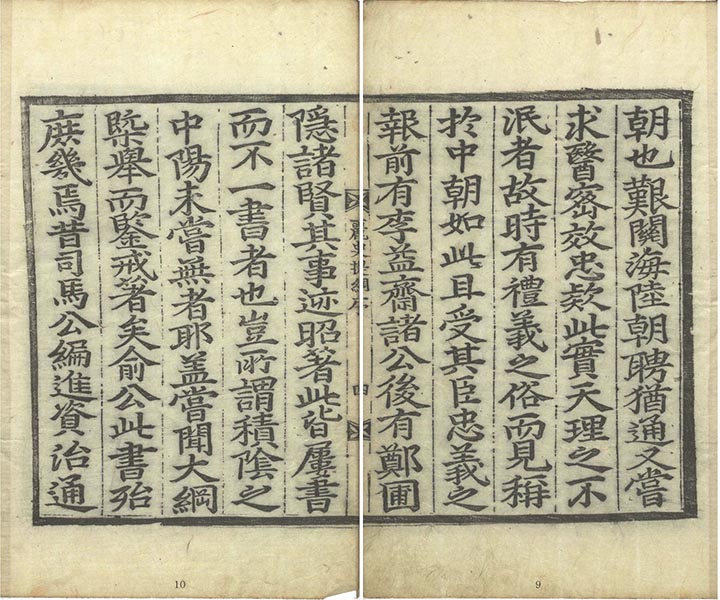 朝也艱關海陸朝聘猶通又嘗
求醫密效忠欵此實天理之不
泯者故時有禮義之俗而見稱
於中朝如此且受其臣忠義之
報前有李益齋諸公後有鄭圃
麗史提綱序 四
隱諸賢其事迹昭著此皆屢書
而不一書者也豈所謂積陰之
中陽未嘗無者耶盖嘗聞大綱
槩舉而鑒戒著矣俞公此書殆
庶幾焉昔司馬公編進資治通
9
10